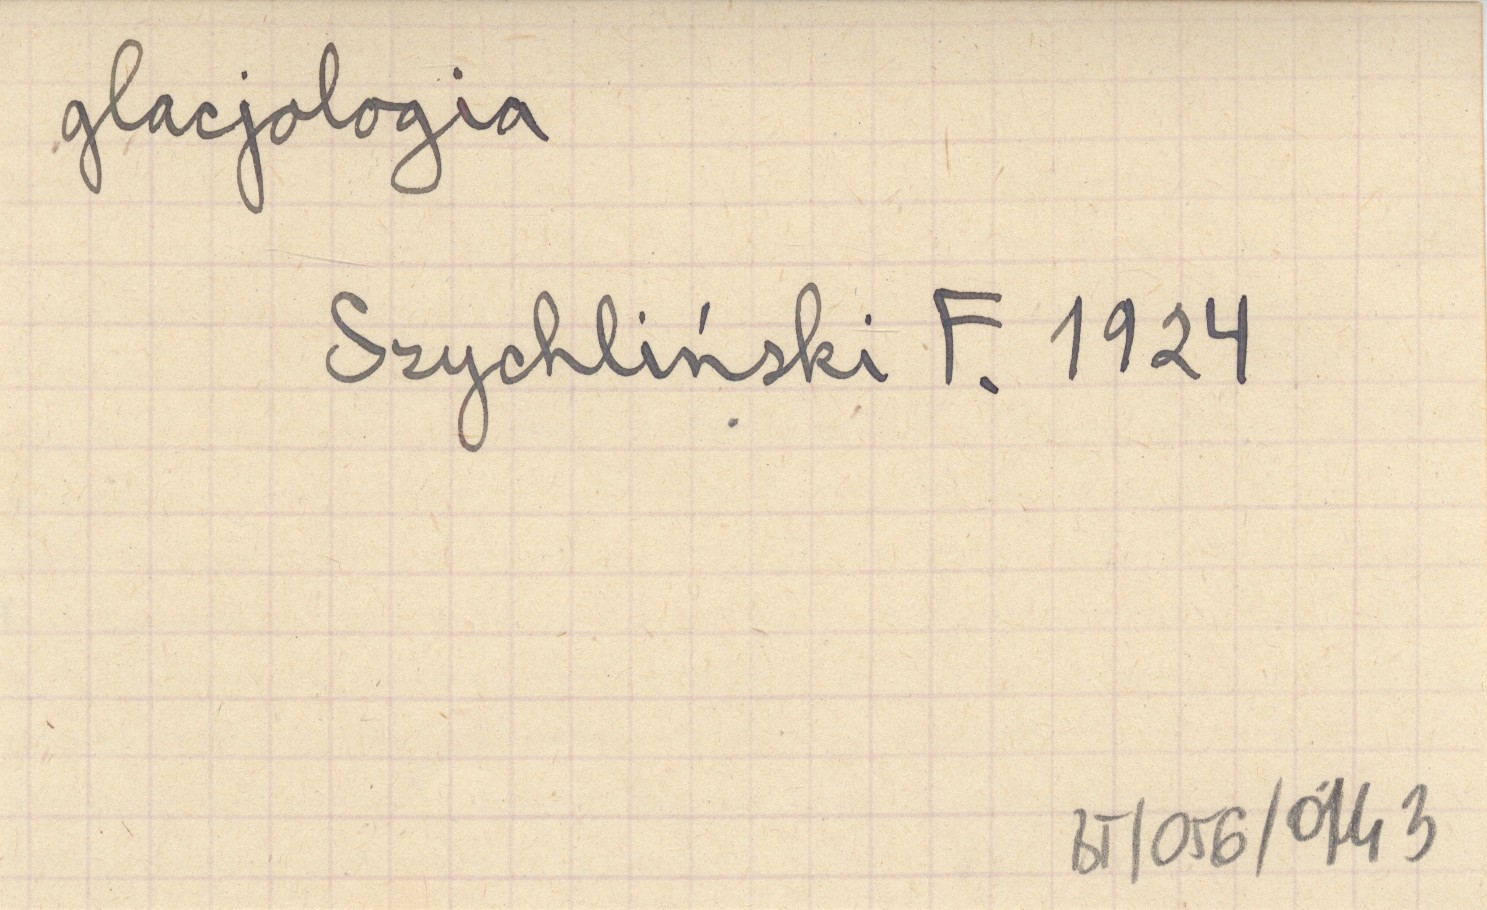 glacjologia
Szychliński F. 1924
BT/056/0143